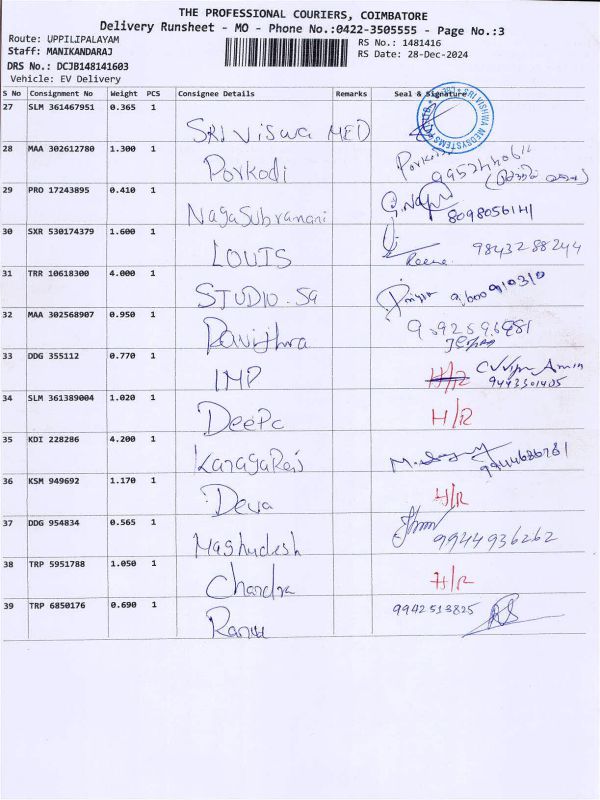 THE PROFESSIONAL COURIERS, COIMBATORE
Delivery Runsheet - MO - Phone No.:0422-3505555 - Page No.:3
Route: UPPILIPALAYAM
Staff: MANIKANDARAJ
DRS No.: DCJB148141603
Vehicle: EV Delivery
RS No.: 1481416
RS Date: 28-Dec-2024
S No Consignment No Weight PCS Consignee Details Remarks Seal & Signature
27 SLM 361467951 0.365 1 SRI Viswa MED
SRI VISHWA MEDSYSTEMS
28 MAA 302612780 1.300 1 Porkodi
29 PRO 17243895 0.410 1 NagaSubramani 8098056141
30 SXR 530174379 1.600 1 LOUIS Reena 9843288244
31 TRR 10618300 4.000 1 STUDIO.SG Priya 9600910310
32 MAA 302568907 0.950 1 Pavithra
33 DDG 355112 0.770 1 IMP H/R 9443301405
34 SLM 361389004 1.020 1 DeePa H/R
35 KDI 228286 4.200 1 KanagaRaj
36 KSM 949692 1.170 1 Deva H/R
37 DDG 954834 0.565 1 Maghudesh 9944936262
38 TRP 5951788 1.050 1 Chandra H/R
39 TRP 6850176 0.690 1 9942513825